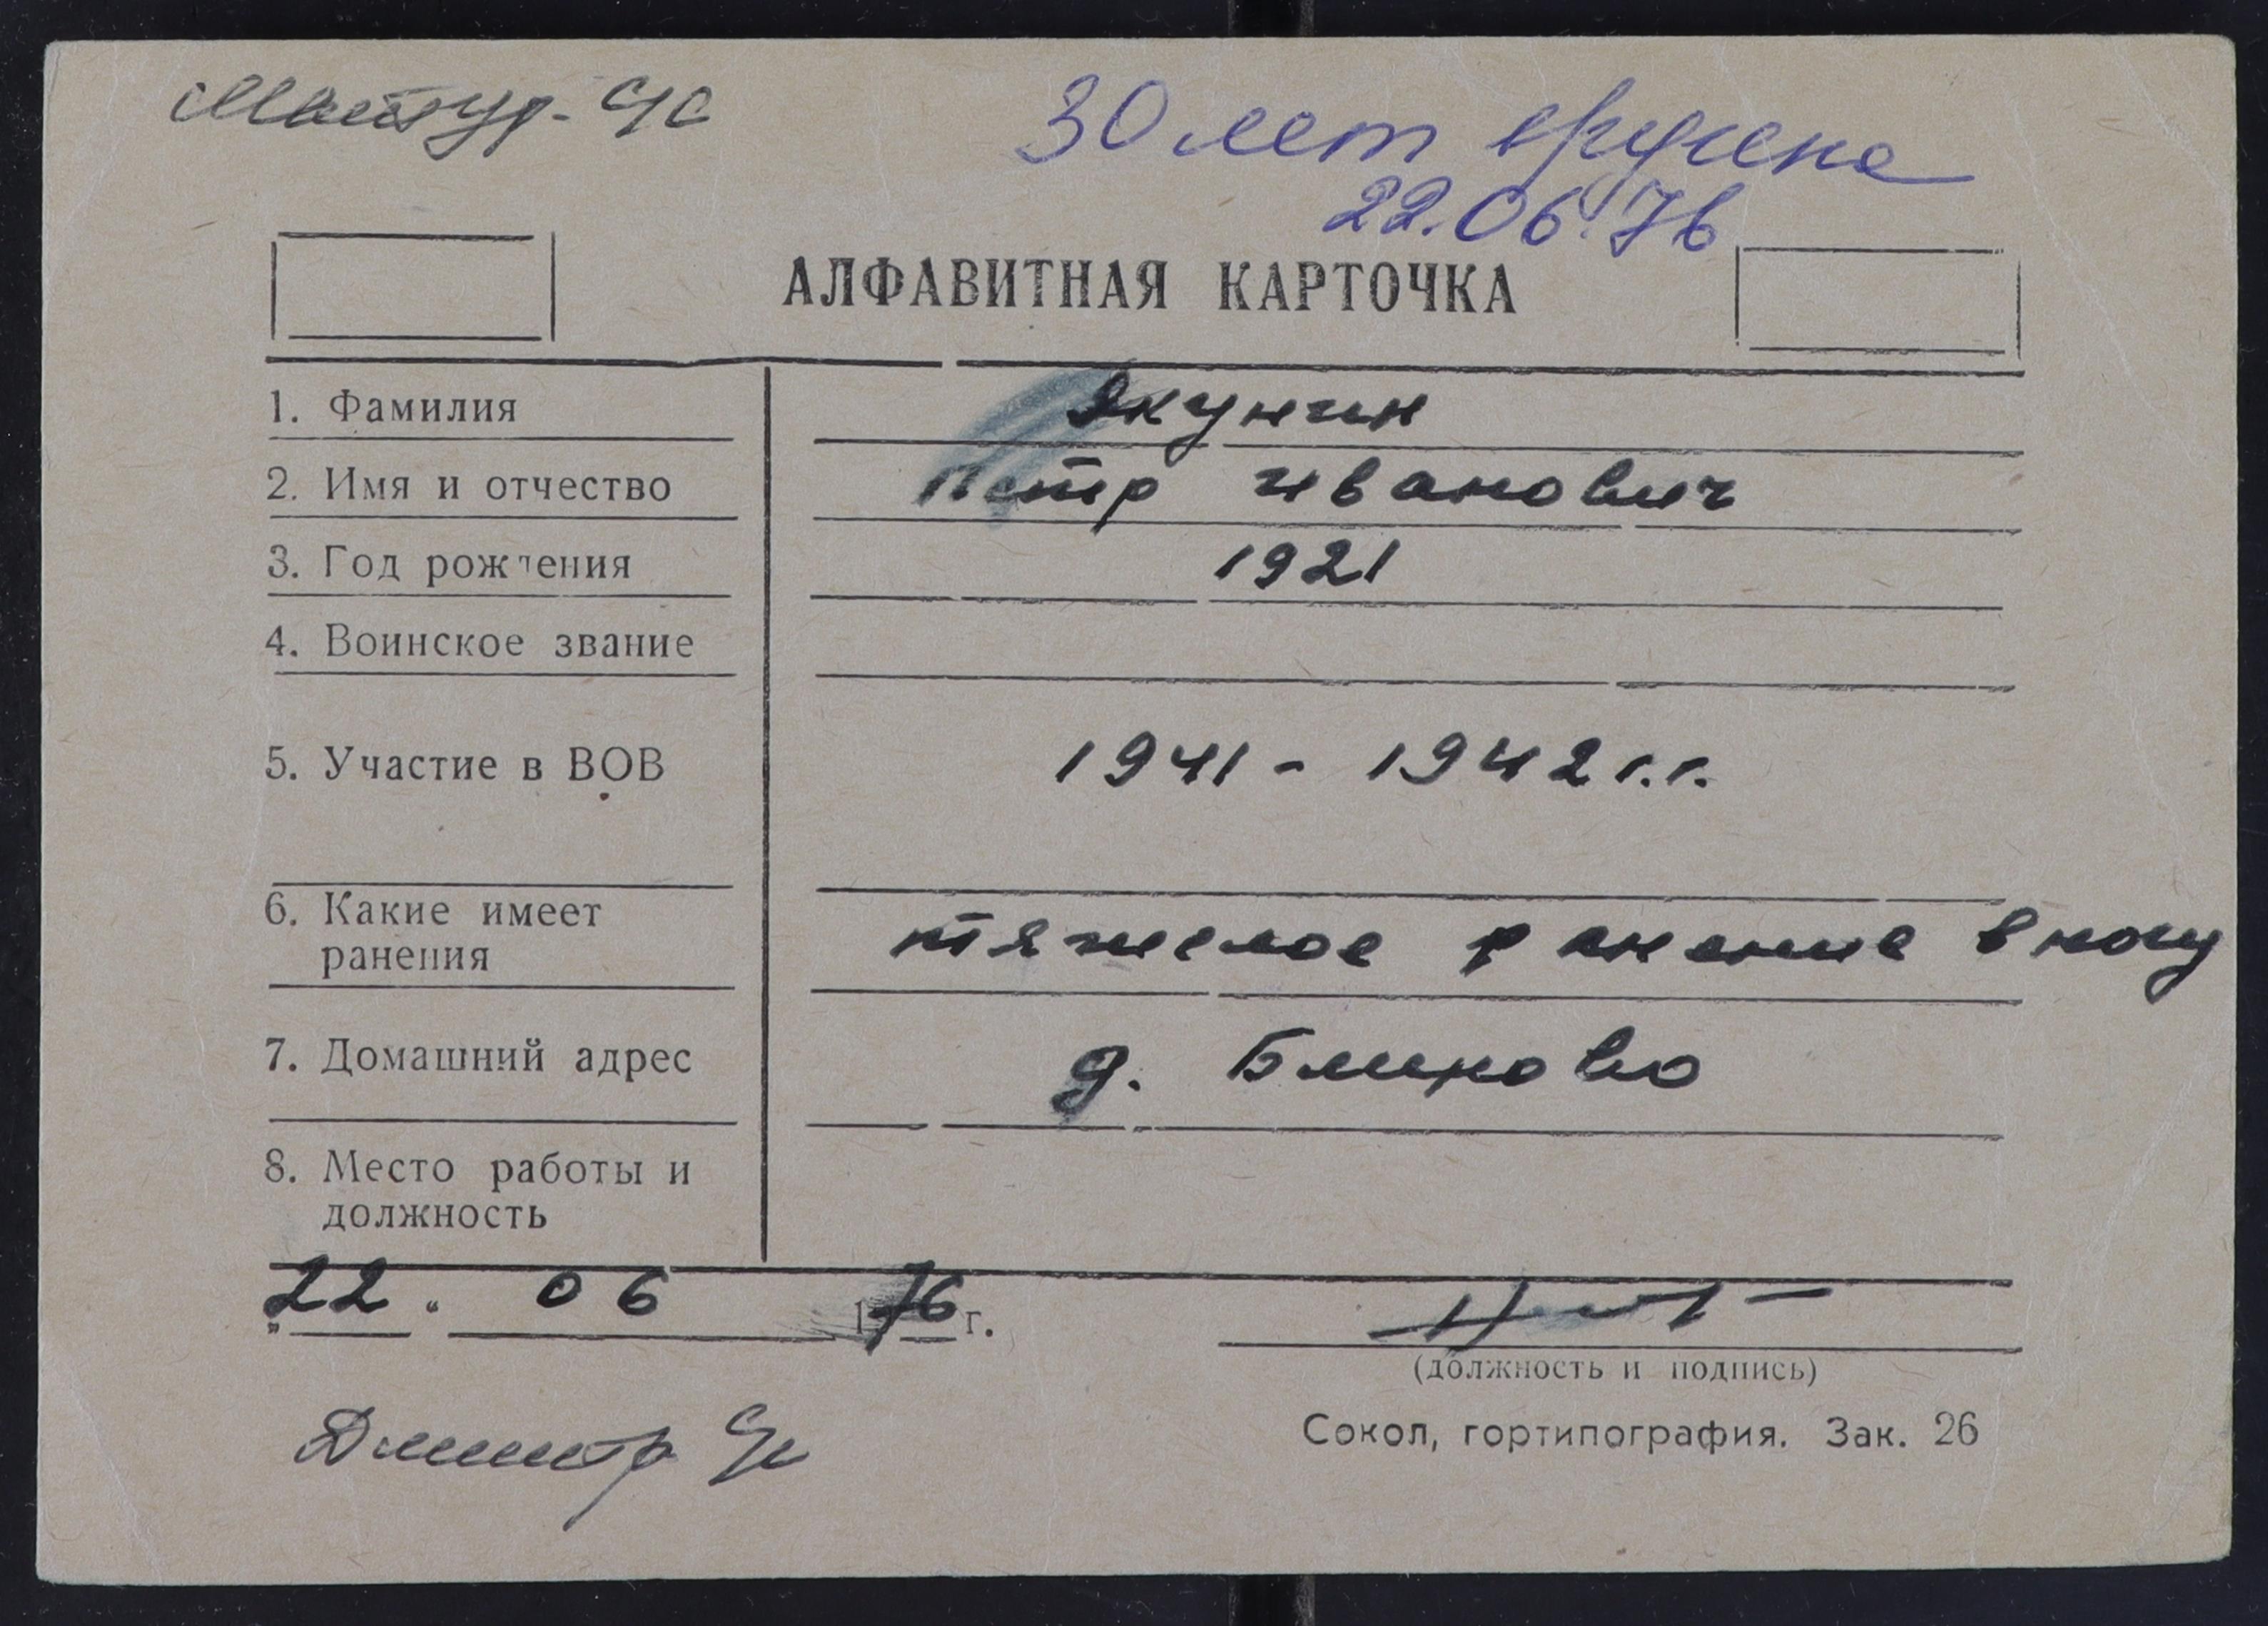 30 лет вручена
22.06.76
АЛФАВИТНАЯ КАРТОЧКА
1. Фамилия Якунин
2. Имя и отчество Петр Иванович
3. Год рождения 1921
4. Воинское звание
5. Участие в ВОВ 1941 - 1942 г.г.
6. Какие имеет
ранения тяжелое ранение в ногу
7. Домашний адрес д. Блиново
8. Место работы и
должность
22. 06 1976 г.
(должность и подпись)
Сокол, гортипография. Зак. 26